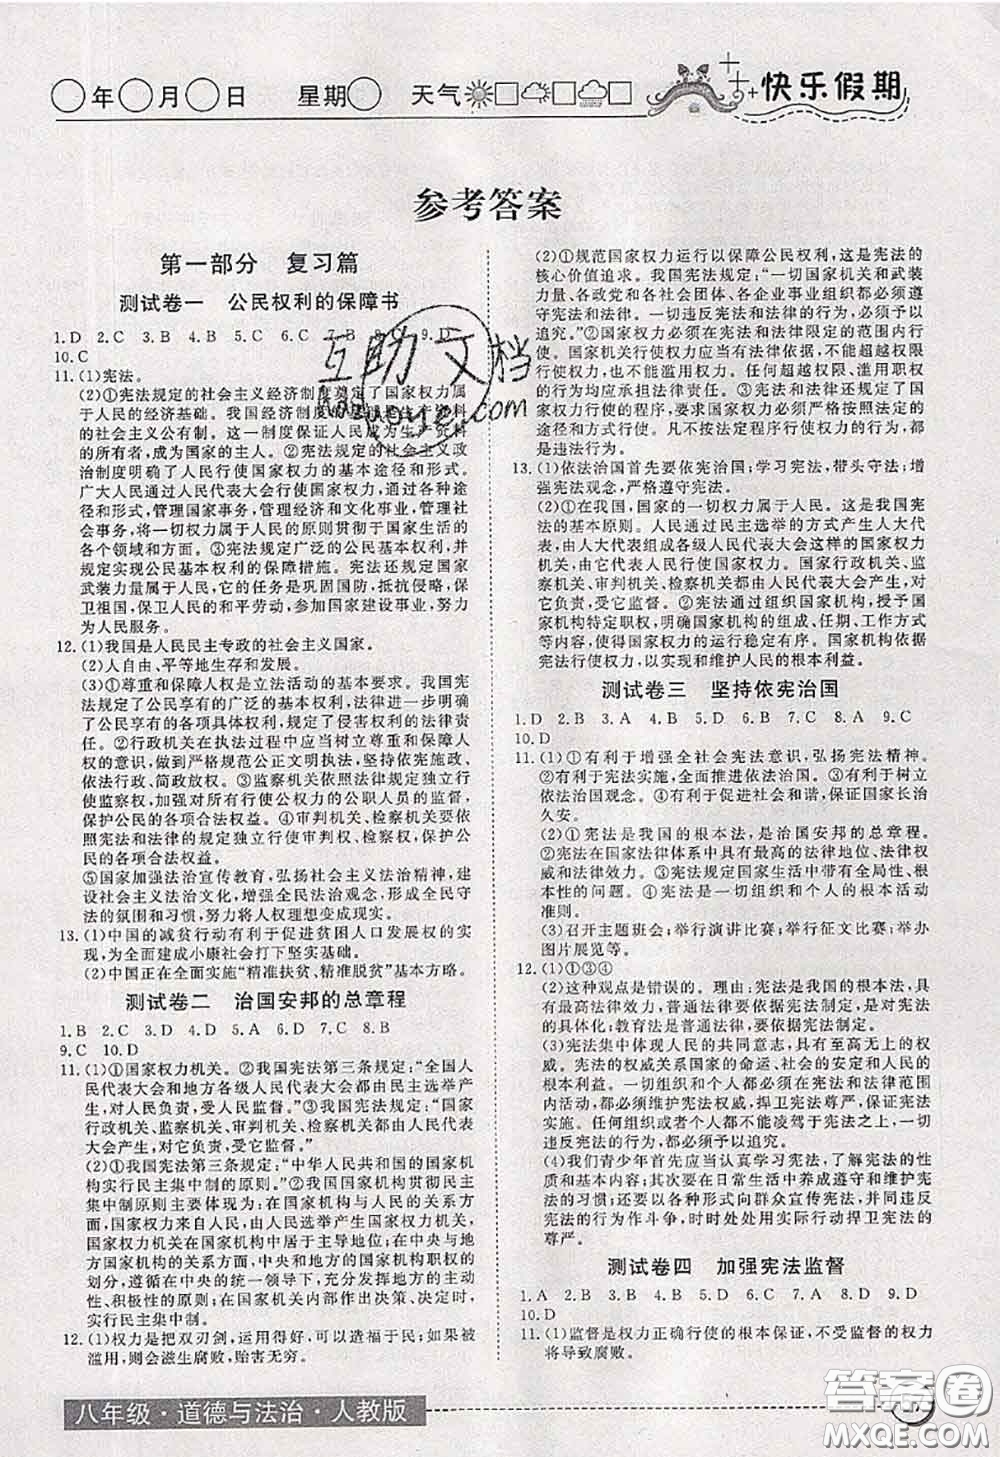 年 月 日 星期 天气
快乐假期
参考答案
第一部分 复习篇
测试卷一 公民权利的保障书
1.D 2.C 3.B 4.B 5.C 6.C 7.B 8.C 9.D
10.C
11.(1)宪法。
(2)①宪法规定的社会主义经济制度奠定了国家权力属
于人民的经济基础。我国经济制度的
的社会主义公有制。这一制度保证人民成为生产资料
的所有者,成为国家的主人。②宪法规定的社会主义政
治制度明确了人民行使国家权力的基本途径和形式。
广大人民通过人民代表大会行使国家权力,通过各种途
径和形式,管理国家事务,管理经济和文化事业,管理社
会事务,将一切权力属于人民的原则贯彻于国家生活的
各个领域和方面。③宪法规定广泛的公民基本权利,并
规定实现公民基本权利的保障措施。宪法还规定国家
武装力量属于人民,它的任务是巩固国防,抵抗侵略,保
卫祖国,保卫人民的和平劳动,参加国家建设事业,努力
为人民服务。
12.(1)我国是人民民主专政的社会主义国家。
(2)人自由、平等地生存和发展。
(3)①尊重和保障人权是立法活动的基本要求。我国宪
法规定了公民享有的广泛的基本权利,法律进一步规定
了公民享有的各项具体权利,规定了侵害权利的法律责
任。②行政机关在执法过程中应当树立尊重和保障人
权的意识,做到严格规范公正文明执法,坚持依宪施政、
依法行政、简政放权。③监察机关依照法律规定履行
监察权,加强对所有行使公权力的公职人员的监督,
保护公民的各项合法权益。④审判机关、检察机关要依
照宪法和法律的规定独立行使审判权、检察权,保护公
民的各项合法权益。
⑤国家加强法治宣传教育,弘扬社会主义法治精神,建
设社会主义法治文化,增强全民法治观念,形成全民守
法的氛围和习惯,努力将人权理想变成现实。
13.(1)中国的减贫行动有利于促进贫困人口发展权的实
现,为全面建成小康社会打下坚实基础。
(2)中国正在全面实施“精准扶贫、精准脱贫”基本方略。
测试卷二 治国安邦的总章程
1.B 2.C 3.D 4.D 5.A 6.D 7.C 8.B
9.C 10.D
11.(1)①国家权力机关。②我国宪法第三条规定:“全国人
民代表大会和地方各级人民代表大会都由民主选举产
生,对人民负责,受人民监督。”③我国宪法规定:“国家
行政机关、监察机关、审判机关、检察机关都由人民代表
大会产生,对它负责,受它监督。”
(2)①我国宪法第三条规定:“中华人民共和国的国家机
构实行民主集中制的原则。”②我国国家机构贯彻民主
集中制原则主要体现为:在国家机构与人民的关系方
面,国家权力来自人民,由人民选举产生国家权力机关,
国家权力机关在国家机构中居于主导地位;在中央与地
方国家机构的关系方面,中央和地方国家机构职权的划
分,遵循在中央的统一领导下,充分发挥地方的主动
性、积极性的原则;在国家机关内部作出决策、决定时,
实行民主集中制。
12.(1)权力是把双刃剑,运用得好,可以造福于民;如果被
滥用,则会滋生腐败,贻害无穷。
(2)①规范国家权力运行以保障公民权利,这是宪法的
核心价值追求。我国宪法规定:“一切国家机关和武装
力量、各政党和各社会团体、各企业事业组织都必须遵
守宪法和法律。一切违反宪法和法律的行为,必须予以
追究。”②国家权力必须在宪法和法律限定的范围内行
使。国家机关行使权力应当有法律依据,不能超越权限
行使权力,也不能滥用权力。任何超越权限、滥用职权
的行为均应承担法律责任。③宪法和法律规定了国家
权力行使的程序,要求国家权力必须严格按照法定的
途径和方式行使。凡不按法定程序行使权力的行为,都
是违法行为。
13.(1)依法治国首先要依宪治国;学习宪法,带头守法;增
强宪法观念,严格遵守宪法。
(2)①在我国,国家的一切权力属于人民,这是我国宪
法的基本原则。人民通过民主选举的方式产生人大代
表,由人大代表组成各级人民代表大会这样的国家权力
机关,由它来代表人民行使权力。国家行政机关、监
察机关、审判机关、检察机关都由人民代表大会产生,对
它负责,受它监督。②宪法通过组织国家机构,授予国
家机构特定职权,明确国家机构的组成、任期、工作方式
等内容,使得国家权力的运行稳定有序。国家机构依据
宪法行使权力,以实现和维护人民的根本利益。
测试卷三 坚持依宪治国
1.D 2.B 3.A 4.C 5.D 6.B 7.C 8.A 9.C
10.D
11.(1)①有利于增强全社会宪法意识,弘扬宪法精神。
②有利于宪法实施,全面推进依法治国。③有利于树立
依法治国观念。④有利于促进社会和谐,保证国家长治
久安。
(2)①宪法是我国的根本法,是治国安邦的总章程。
②宪法在国家法律体系中具有最高的法律地位、法律权
威和法律效力。③宪法规定国家生活中带有全局性、根
本性的问题。④宪法是一切组织和个人的根本活动
准则。
(3)召开主题班会;举行演讲比赛;举行征文比赛;举办
图片展览等。
12.(1)①③④
(2)这种观点是错误的。理由:宪法是我国的根本法,具
有最高的法律效力。普通法律依据宪法制定,是宪法
的具体化;教育法是普通法律,要依据宪法制定。
(3)宪法集中体现人民的共同意志,具有至高无上的权
威。宪法的权威关系国家的命运、社会的安定和人民的
根本利益。一切组织和个人都必须在宪法和法律范围
内活动,都必须维护宪法权威,捍卫宪法尊严,保证宪法
实施。任何组织或者个人不能凌驾于宪法之上,一切
违反宪法的行为,都必须予以追究。
(4)我们青少年首先应当认真学习宪法,了解宪法的性
质和基本内容;其次要在日常生活中养成遵守和维护宪
法的习惯;还要以各种形式向群众宣传宪法,并同违反
宪法的行为作斗争,时时处处用实际行动捍卫宪法的
尊严。
测试卷四 加强宪法监督
1.A 2.C 3.B 4.C 5.D 6.B 7.A 8.C 9.D
10.D
11.(1)监督是权力正确行使的根本保证,不受监督的权力
将导致腐败。
八年级·道德与法治·人教版
互助文档
答案圈
MXQE.COM